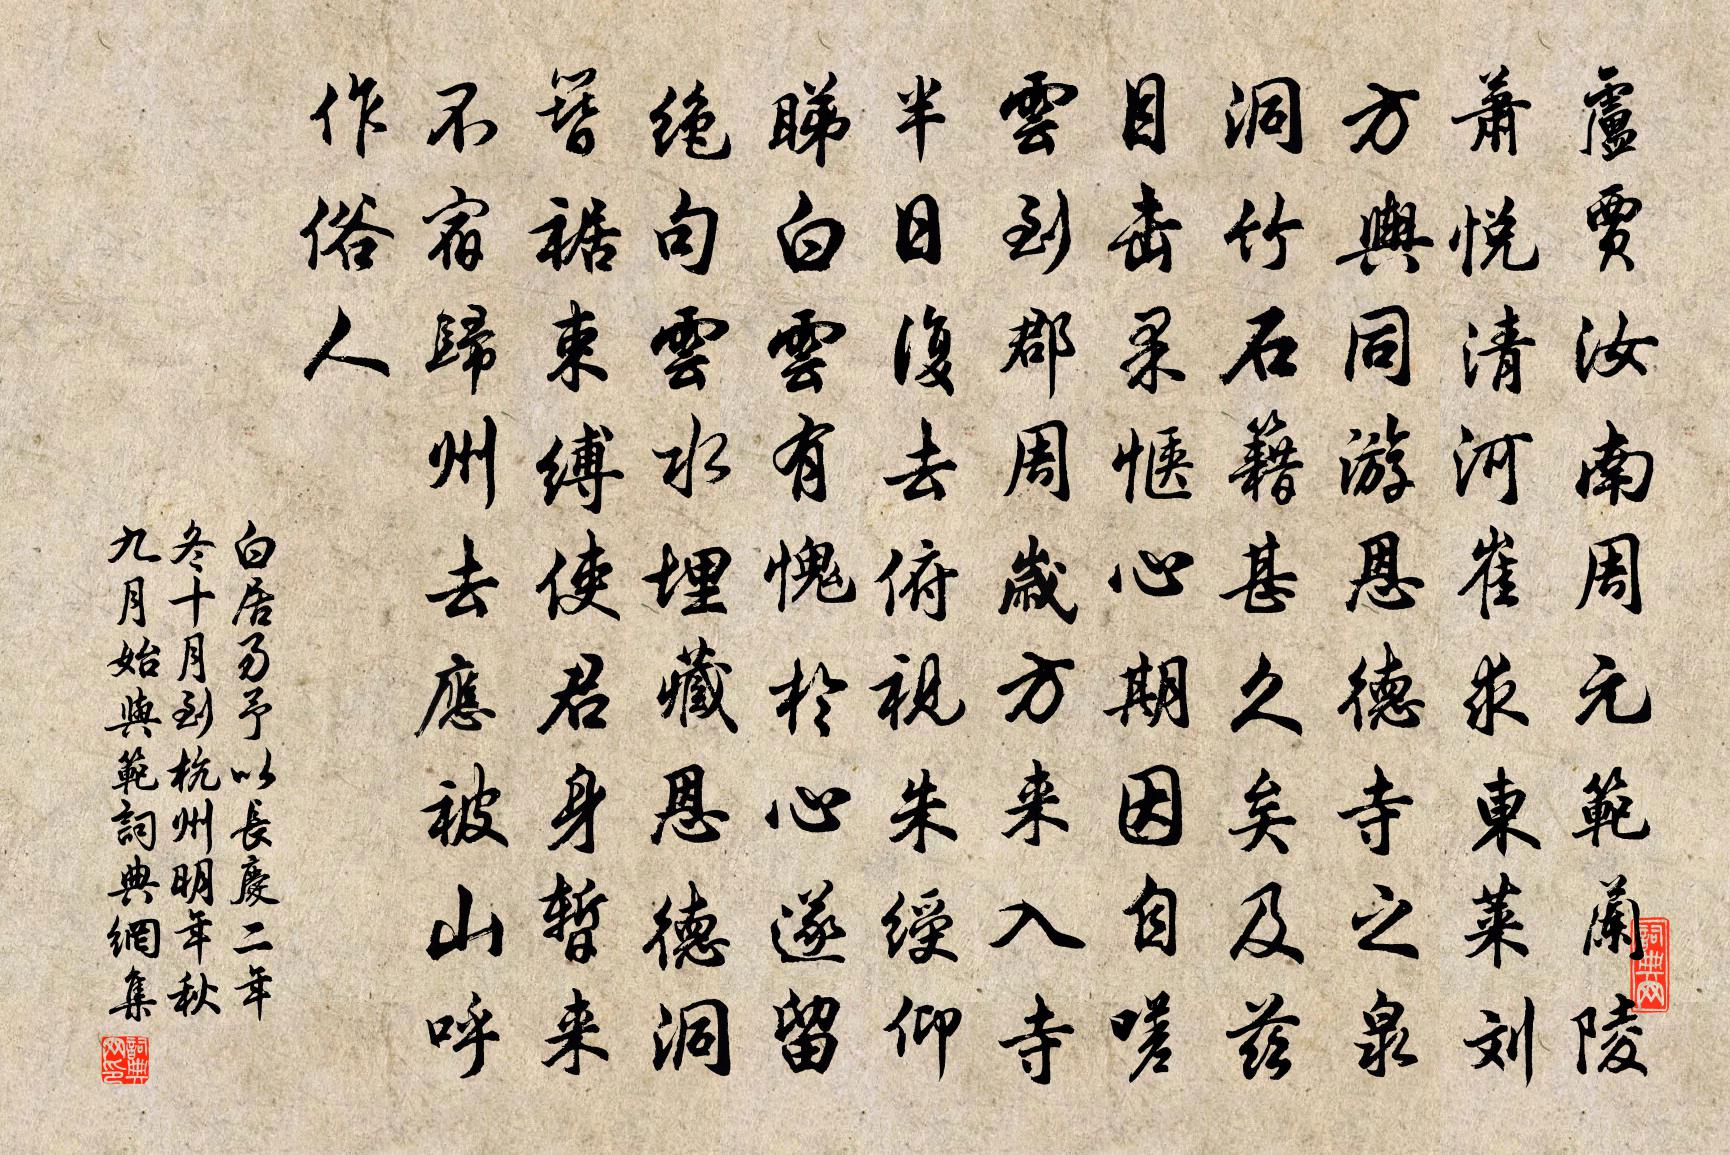 盧賈汝南周元範蘭陵
萧悦清河崔求東萊刘
方輿同游恩德寺之泉
洞竹石籍甚久矣及茲
目击果惬心期因自嗟
雲到郡周歲方来入寺
半日復去俯視朱绶仰
睇白雲有愧於心遂留
绝句雲水埋藏恩德洞
簪裾束缚使君身暫来
不宿歸州去應被山呼
作俗人
白居易予以長慶二年
冬十月到杭州明年秋
九月始與範詞典網集
詞典网
詞典网印